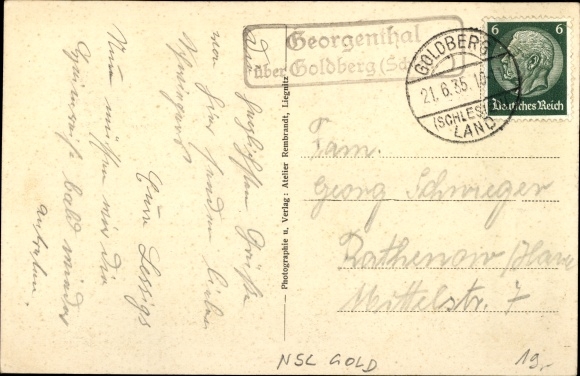 Die herzlichsten Grüße
von hier senden lieben
Eure
Nun müssen wir die
bald wieder
antreten.
Georgenthal
über Goldberg (Sch
GOLDBERG
21.6.35.10
(SCHLES)
LAND
6 6
Deutsches Reich
– Photographie u. Verlag: Atelier Rembrandt, Liegnitz –
Fam.
Georg Schwieger
Rathenow/Havel
Mittelstr. 7
NSL GOLD
19,-